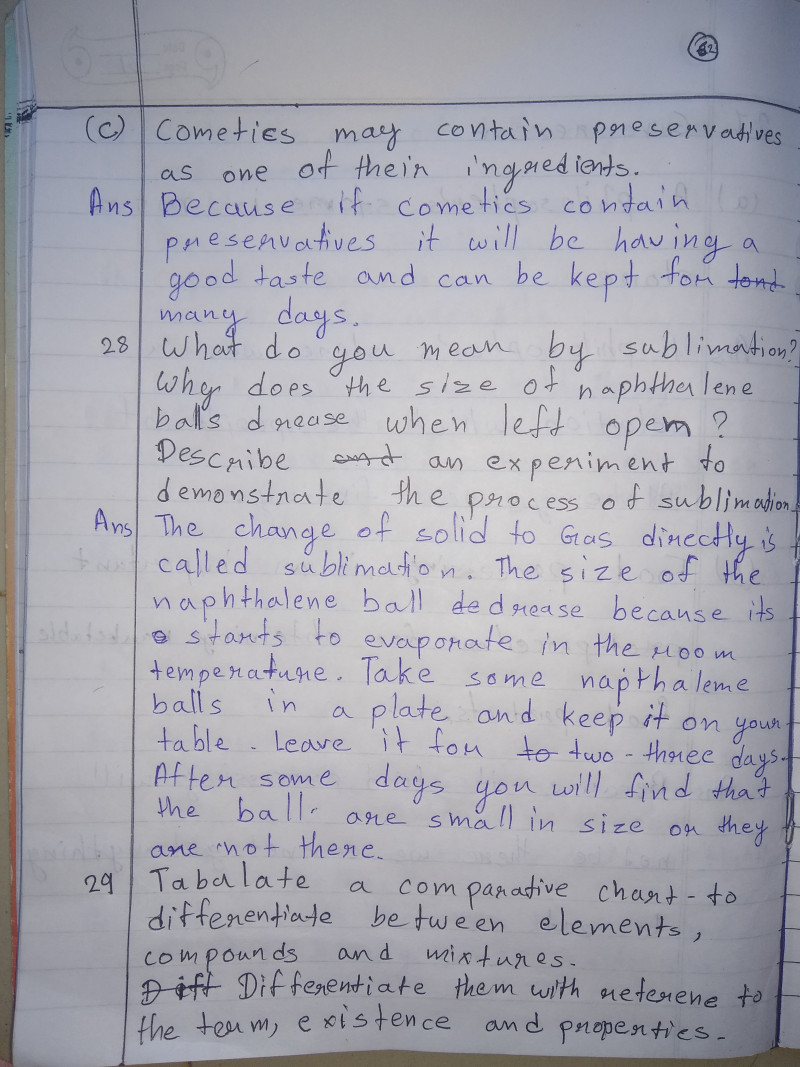 (C) Cometies may contain preservatives
as one of their ingredients.
Ans Because if cometics contain
preservatives it will be having a
good taste and can be kept for tont
many days.
28 What do you mean by sublimation?
Why does the size of naphthalene
balls drease when left opem?
Describe and an experiment to
demonstrate the process of sublimation
Ans The change of solid to Gas directly is
called sublimation. The size of the
naphthalene ball de drease because its
starts to evaporate in the room
temperature. Take some napthaleme
balls in a plate and keep it on your
table. Leave it for to two-three days.
After some days you will find that
the ball are small in size or they
are not there.
29 Tabulate a comparative chart-to
differentiate between elements,
compounds and mixtures.
Diff Differentiate them with referene to
the term, existence and properties.